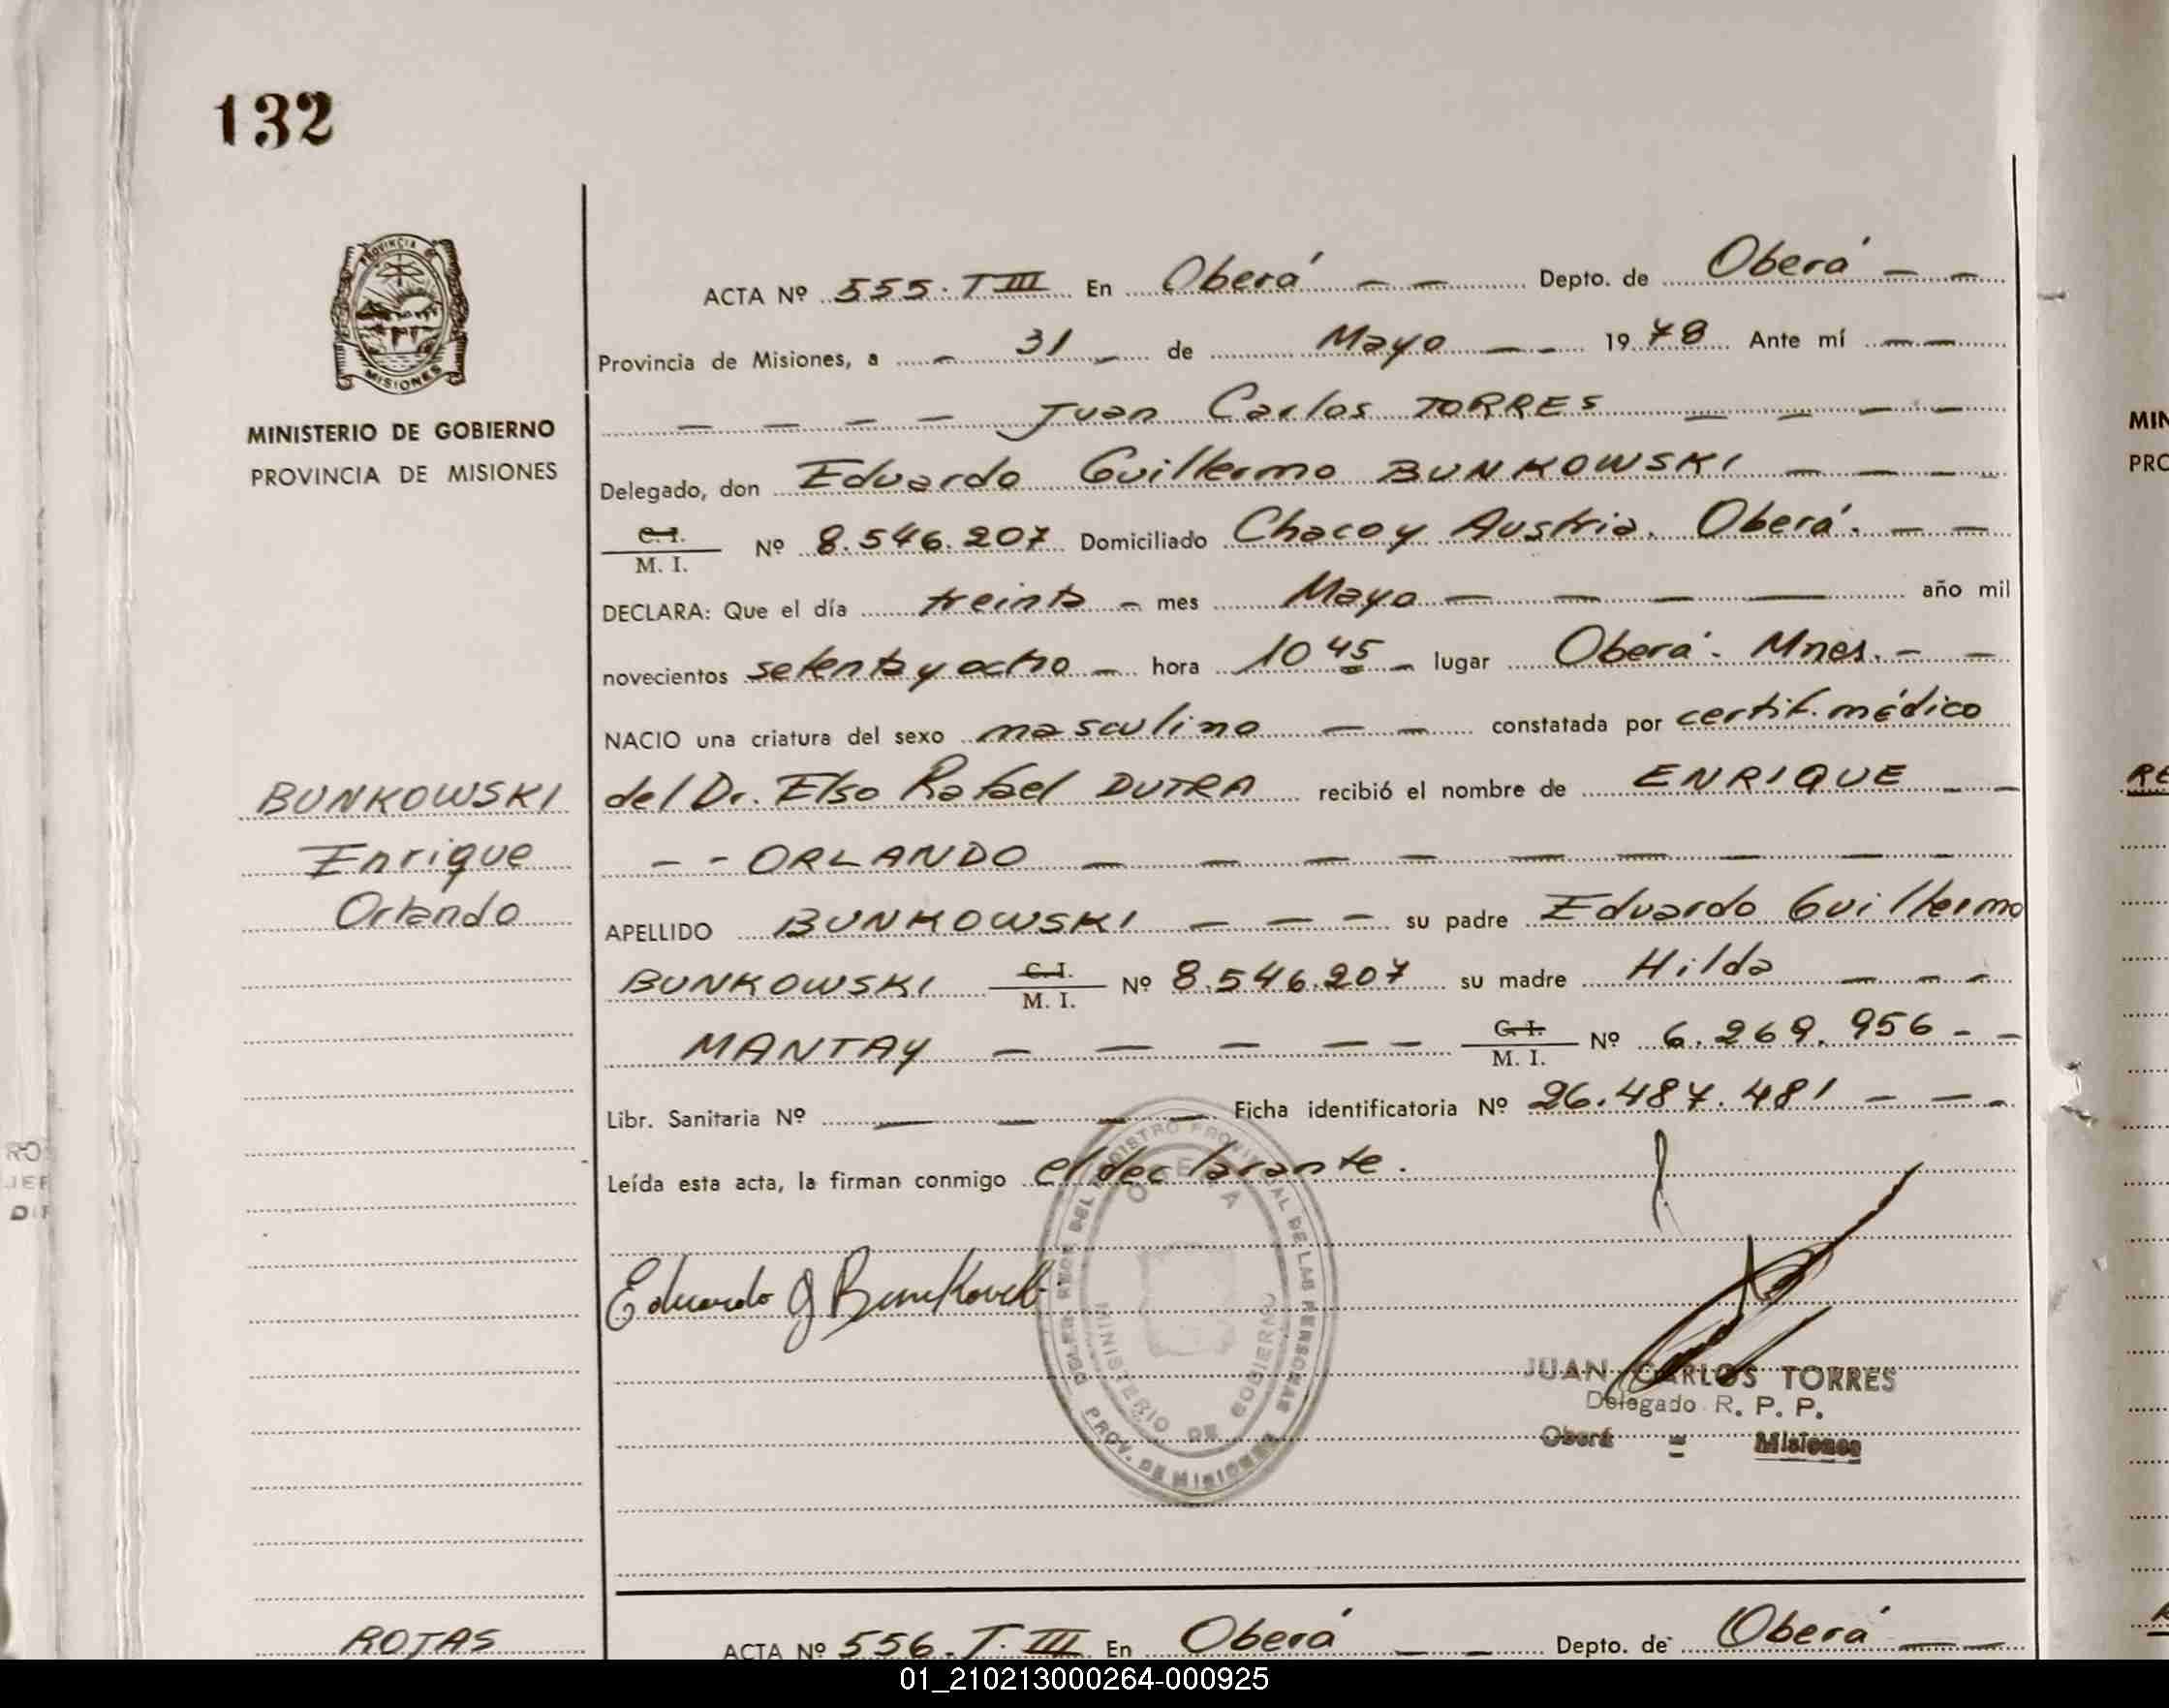 132
PROVINCIA DE
MISIONES
MINISTERIO DE GOBIERNO
PROVINCIA DE MISIONES
ACTA Nº 555. T III En Oberá — — Depto. de Oberá — —
Provincia de Misiones, a — 31 — de Mayo — — 1978 Ante mí — —
— — — — Juan Carlos TORRES — — — —
Delegado, don Eduardo Guillermo BUNKOWSKI — — — —
C.I.
M. I. Nº 8.546.207 Domiciliado Chaco y Austria. Oberá. — —
DECLARA: Que el día treinta — mes Mayo — — — — año mil
novecientos setenta y ocho — hora 10 45 — lugar Oberá. Mnes. — —
NACIO una criatura del sexo masculino — — constatada por certif. médico
del Dr. Elso Rafael DUTRA recibió el nombre de ENRIQUE — —
- - ORLANDO — — — — — — — — —
APELLIDO BUNKOWSKI — — — su padre Eduardo Guillermo
BUNKOWSKI C.I.
M. I. Nº 8.546.207 su madre Hilda — — —
MANTAY — — — — — C.I.
M. I. Nº 6.269.956 - —
Libr. Sanitaria Nº — — — — Ficha identificatoria Nº 26.487.481 — — -
Leída esta acta, la firman conmigo el declarante.
BUNKOWSKI
Enrique
Orlando
Eduardo G Bunkowski
DEL REGISTRO PROVINCIAL DE LAS PERSONAS
OBERA
MINISTERIO DE GOBIERNO
PROV. DE MISIONES
JUAN CARLOS TORRES
Delegado R. P. P.
Oberá = Misiones
ROJAS
ACTA Nº 556. T. III En Oberá — — Depto. de Oberá — —
MIN
PRO
01_210213000264-000925